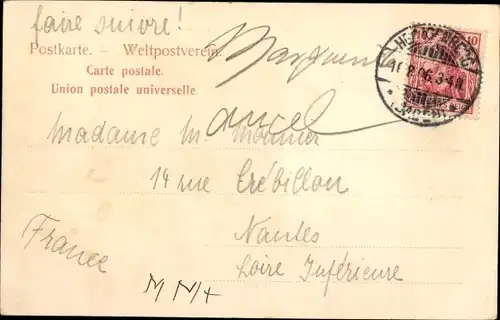 faire suivre!
Postkarte. – Weltpostverein.
Carte postale.
Union postale universelle.
10
16.8.06.3-4N
Madame M.
14 rue Crébillon
Nantes
Loire Inférieure
France